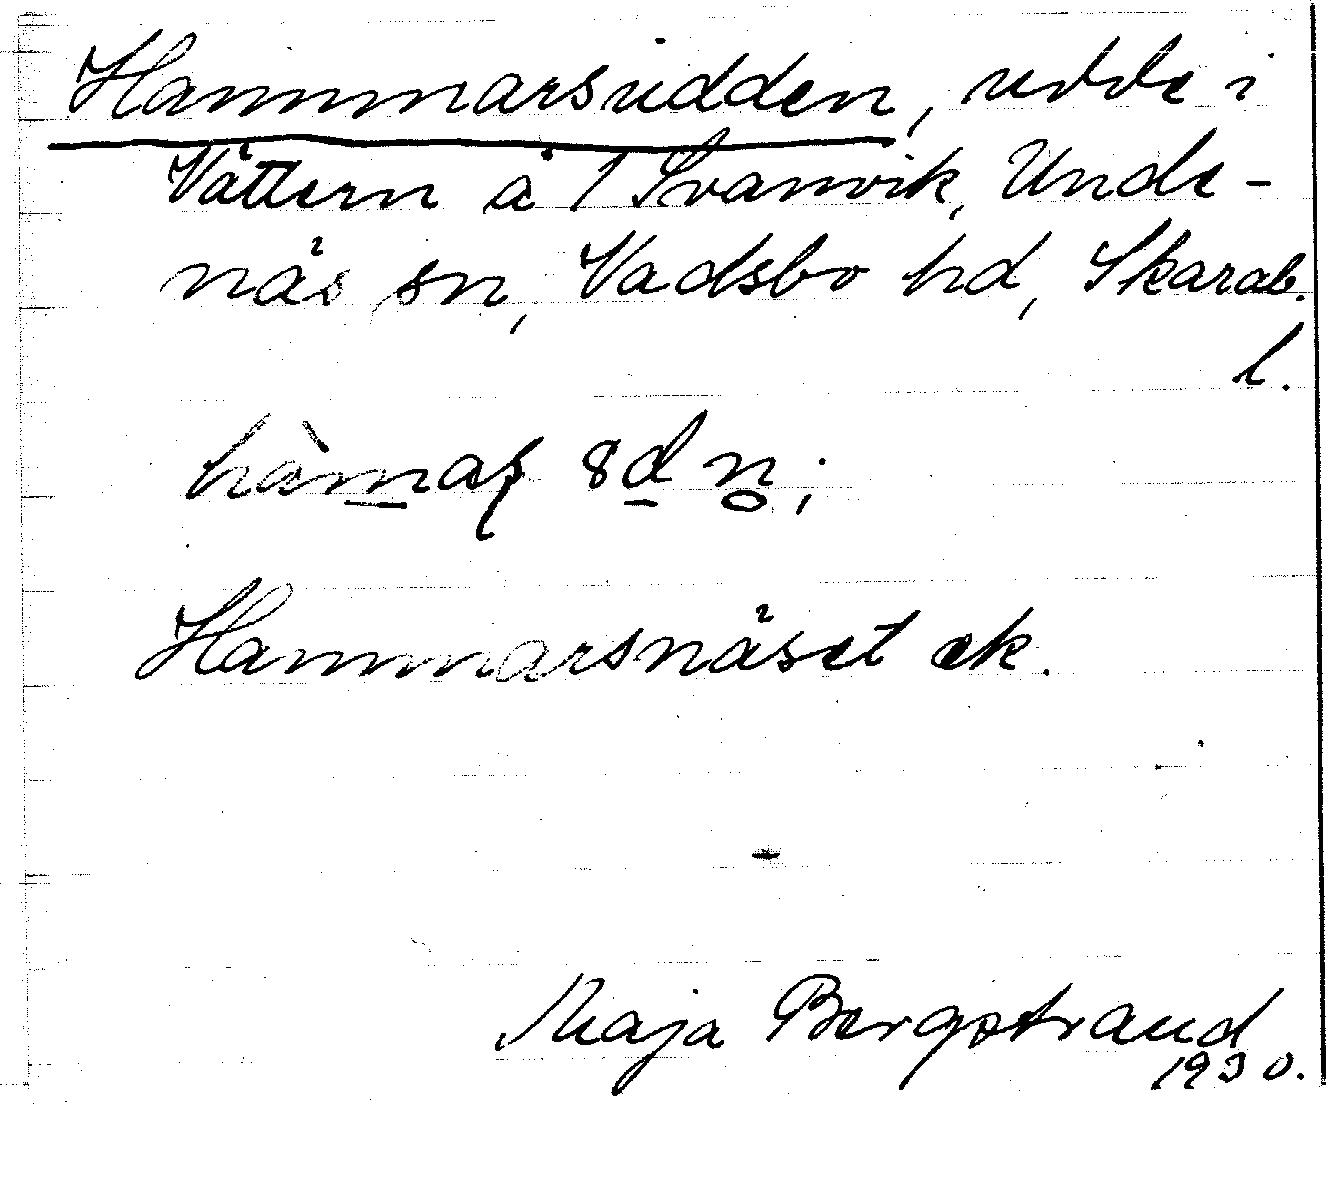 Hammarsudden, udde i
Vättern å 1 Svanvik, Unde-
näs sn, Vadsbo hd, Skarab.
l.
Hammarsnäset ek.
Maja Bergstrand
1930.